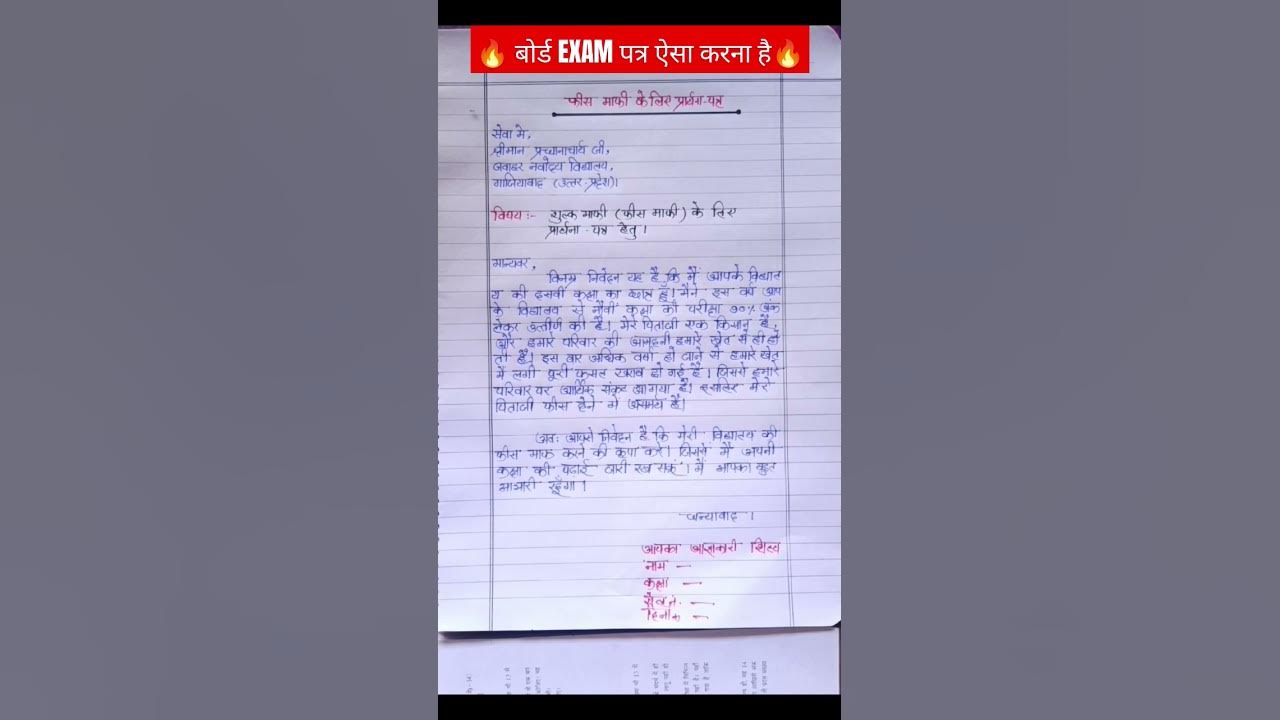 🔥 बोर्ड EXAM पत्र ऐसा करना है🔥
फीस माफी के लिए प्रार्थना-पत्र
सेवा मे,
श्रीमान प्रधानाचार्य जी,
जवाहर नवोदय विद्यालय,
गाजियाबाद (उत्तर-प्रदेश)।
विषय:- शुल्क माफी (फीस माफी) के लिए
प्रार्थना-पत्र हेतु।
मान्यवर,
विनम्र निवेदन यह है कि मैं आपके विद्याल
य की दसवीं कक्षा का छात्र हूँ। मैंने इस वर्ष आप
के विद्यालय से नौवीं कक्षा की परीक्षा 90% अंक
लेकर उत्तीर्ण की है। मेरे पिताजी एक किसान है,
और हमारे परिवार की आमदनी हमारे खेत से ही हो
ती है। इस बार अधिक वर्षा हो जाने से हमारे खेत
में लगी पूरी फसल खराब हो गई है। जिससे हमारे
परिवार पर आर्थिक संकट आ गया है। इसलिए मेरे
पिताजी फीस देने में असमर्थ हैं।
अतः आपसे निवेदन है कि मेरी विद्यालय की
फीस माफ करने की कृपा करें। जिससे मैं अपनी
कक्षा की पढ़ाई जारी रख सकूं। मैं आपका बहुत
आभारी रहूँगा।
धन्यवाद।
आपका आज्ञाकारी शिष्य
नाम —
कक्षा —
—
दिनांक —